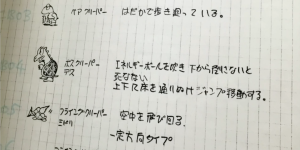 ケアクリーパー
はだかで歩き回っている。
ボスクリーパー
デス
エネルギーボールを吹き下から怪しないと
死なない
上下に床を通りぬけジャンプ移動する。
フライングクリーパー
空中を飛び回る。
一定方向タイプ